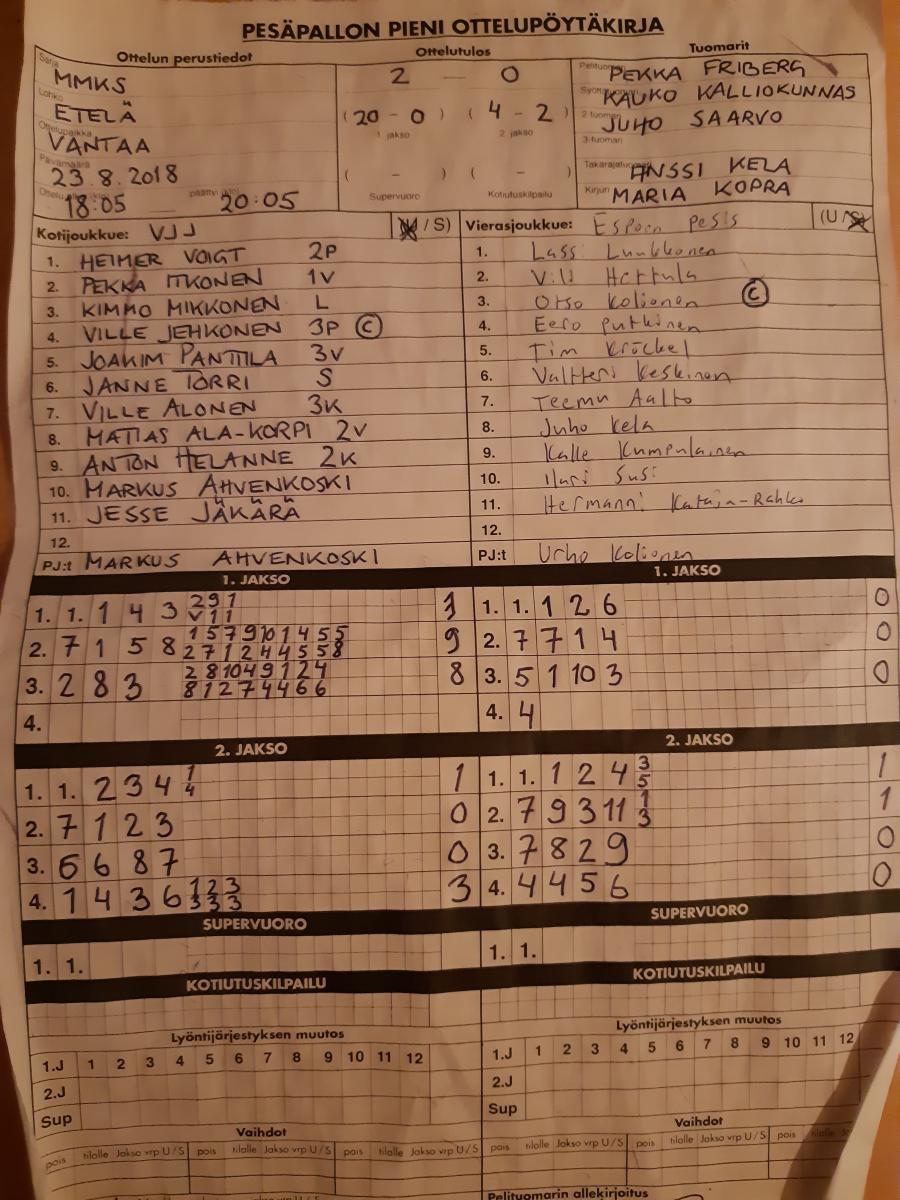 PESÄPALLON PIENI OTTELUPÖYTÄKIRJA
Ottelun perustiedot
Ottelutulos
Tuomarit
Sarja
MMKS
Lohko
ETELÄ
Ottelupaikka
VANTAA
Päivämäärä
23.8.2018
18:05 — 20:05
2 — 0
(20 - 0) (4 - 2)
1 jakso 2 jakso
( - ) ( - )
Supervuoro Kotiutuskilpailu
PEKKA FRIBERG
KAUKO KALLIOKUNNAS
2-tuomari
JUHO SAARVO
3-tuomari
ANSSI KELA
Kirjuri
MARIA KOPRA
Kotijoukkue: VJJ / S)
1. HEIMER VOIGT 2P
2. PEKKA ITKONEN 1V
3. KIMMO MIKKONEN L
4. VILLE JEHKONEN 3P C
5. JOAKIM PANTTILA 3V
6. JANNE TORRI S
7. VILLE ALONEN 3K
8. MATIAS ALA-KORPI 2V
9. ANTON HELANNE 2K
10. MARKUS AHVENKOSKI
11. JESSE JÄKÄRÄ
12.
PJ:t MARKUS AHVENKOSKI
Vierasjoukkue: Espoon Pesis (U /
1. Lassi Luukkonen
2. Vili Herttula
3. Otso Kolionen C
4. Eero Putkinen
5. Tim Kröckel
6. Valtteri Keskinen
7. Teemu Aalto
8. Juho Kela
9. Kalle Kumpulainen
10. Ilari Susi
11. Hermanni Kataja-Rahko
12.
PJ:t Urho Kolionen
1. JAKSO
1. 1. 1 4 3 2 9 1
V 1 1
2. 7 1 5 8 1 5 7 9 10 1 4 5 5 9
2 7 1 2 4 4 5 5 8
3. 2 8 3 2 8 10 4 9 1 2 4 8
8 1 2 7 4 4 6 6
4.
1. JAKSO
1. 1. 1 2 6 0
2. 7 7 1 4 0
3. 5 1 10 3 0
4. 4
2. JAKSO
1. 1. 2 3 4 1 1
4
2. 7 1 2 3 0
3. 6 6 8 7 0
4. 1 4 3 6 1 2 3 3
3 3 3
2. JAKSO
1. 1. 1 2 4 3 1
5
2. 7 9 3 11 1 1
3
3. 7 8 2 9 0
4. 4 4 5 6 0
SUPERVUORO
1. 1.
SUPERVUORO
1. 1.
KOTIUTUSKILPAILU
KOTIUTUSKILPAILU
Lyöntijärjestyksen muutos
1.J 1 2 3 4 5 6 7 8 9 10 11 12
2.J
Sup
Lyöntijärjestyksen muutos
1.J 1 2 3 4 5 6 7 8 9 10 11 12
2.J
Sup
Vaihdot
pois tilalle Jakso vrp U / S pois tilalle Jakso vrp U / S pois tilalle Jakso vrp U / S
Vaihdot
pois tilalle Jakso vrp U / S pois tilalle Jakso vrp U / S pois tilalle
Pelituomarin allekirjoitus